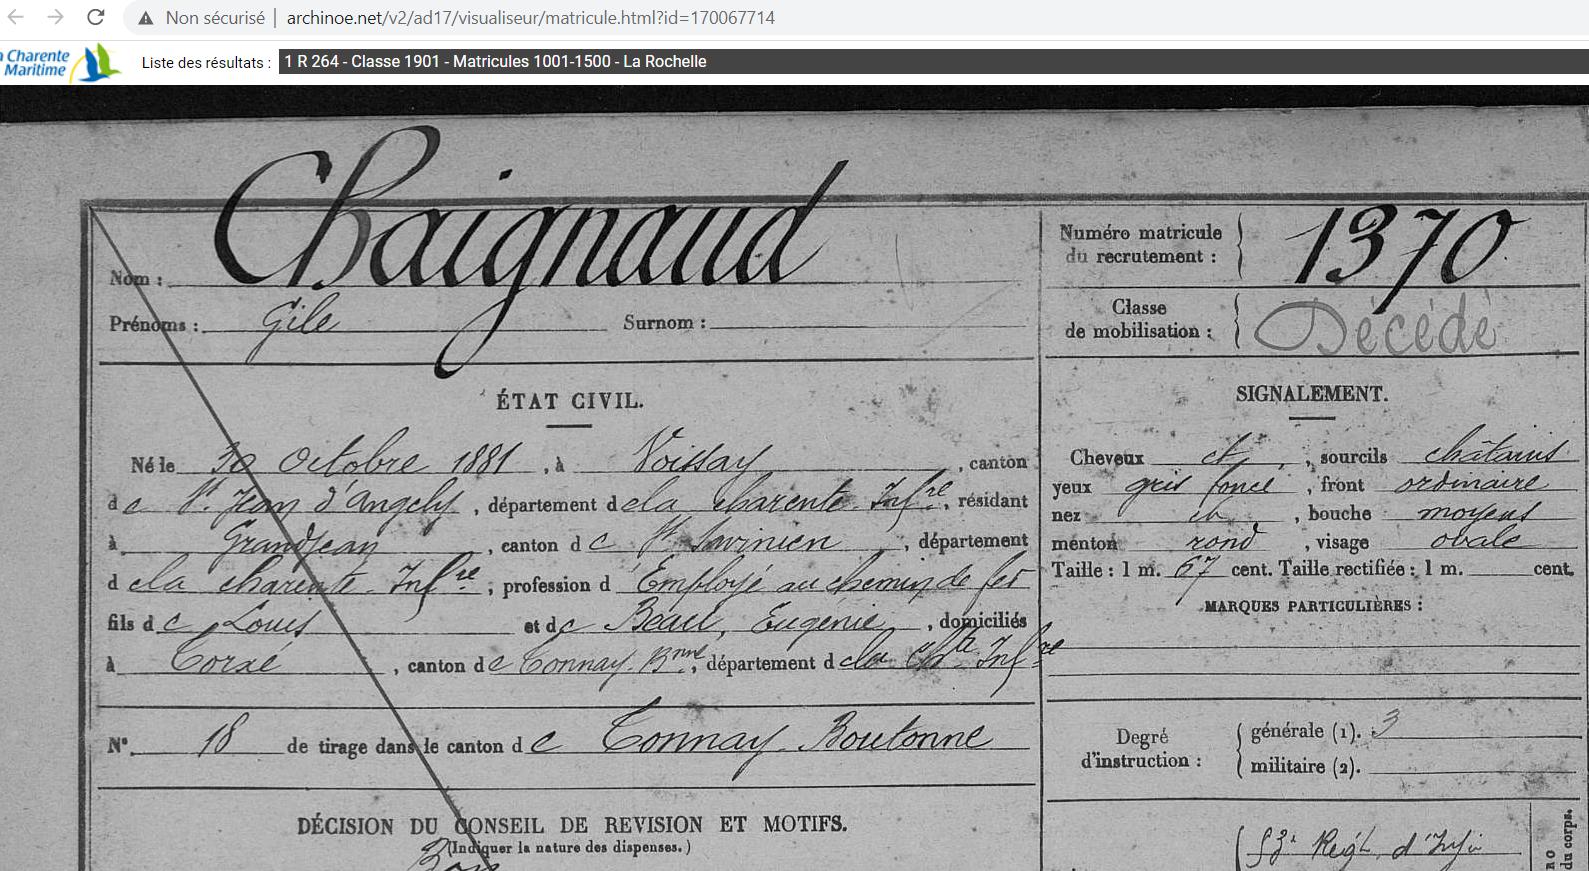 Non sécurisé | archinoe.net/v2/ad17/visualiseur/matricule.html?id=170067714
a Charente Maritime
Liste des résultats : 1 R 264 - Classe 1901 - Matricules 1001-1500 - La Rochelle
Nom : Chaignaud
Prénoms : Gile Surnom :
Numéro matricule du recrutement : 1370
Classe de mobilisation : Décédé
ÉTAT CIVIL.
Né le 30 Octobre 1881, à Voissay, canton
de St Jean d'Angely, département de la charente Infre, résidant
à Grandjean, canton de St Savinien, département
de la charente Infre, profession d Employé au chemin de fer
fils de Louis et de Beau, Eugénie, domiciliés
à Torxé, canton de Tonnay Bnne, département de la Chte Infre
N° 18 de tirage dans le canton de Tonnay Boutonne
DÉCISION DU CONSEIL DE REVISION ET MOTIFS.
(Indiquer la nature des dispenses.)
Bon
SIGNALEMENT.
Cheveux ch, sourcils châtains
yeux gris foncé, front ordinaire
nez, bouche moyens
menton rond, visage ovale
Taille : 1 m. 67 cent. Taille rectifiée : 1 m. cent.
MARQUES PARTICULIÈRES :
Degré d'instruction :
générale (1). 3
militaire (2).
Regt d'Infie
RO
du corps.